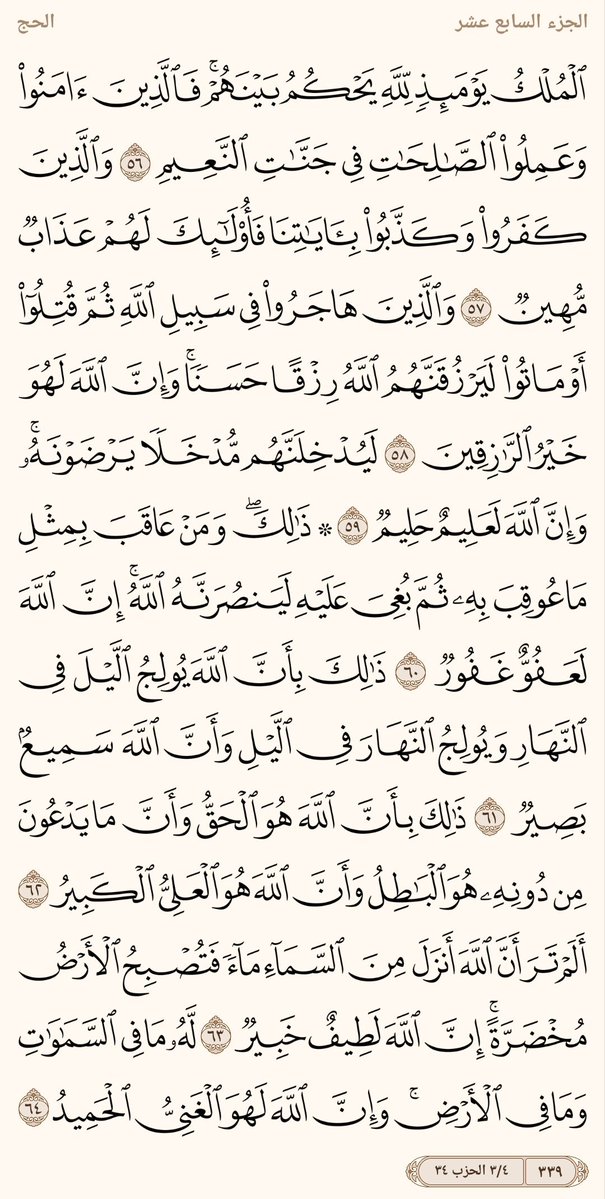 الجزء السابع عشر
الحج
ٱلۡمُلۡكُ يَوۡمَئِذٖ لِّلَّهِ يَحۡكُمُ بَيۡنَهُمۡۚ فَٱلَّذِينَ ءَامَنُواْ
وَعَمِلُواْ ٱلصَّٰلِحَٰتِ فِي جَنَّٰتِ ٱلنَّعِيمِ ٥٦ وَٱلَّذِينَ
كَفَرُواْ وَكَذَّبُواْ بِـَٔايَٰتِنَا فَأُوْلَٰٓئِكَ لَهُمۡ عَذَابٞ
مُّهِينٞ ٥٧ وَٱلَّذِينَ هَاجَرُواْ فِي سَبِيلِ ٱللَّهِ ثُمَّ قُتِلُوٓاْ
أَوۡ مَاتُواْ لَيَرۡزُقَنَّهُمُ ٱللَّهُ رِزۡقًا حَسَنٗاۚ وَإِنَّ ٱللَّهَ لَهُوَ
خَيۡرُ ٱلرَّٰزِقِينَ ٥٨ لَيُدۡخِلَنَّهُم مُّدۡخَلٗا يَرۡضَوۡنَهُۥۚ
وَإِنَّ ٱللَّهَ لَعَلِيمٌ حَلِيمٞ ٥٩ * ذَٰلِكَۖ وَمَنۡ عَاقَبَ بِمِثۡلِ
مَا عُوقِبَ بِهِۦ ثُمَّ بُغِيَ عَلَيۡهِ لَيَنصُرَنَّهُ ٱللَّهُۚ إِنَّ ٱللَّهَ
لَعَفُوٌّ غَفُورٞ ٦٠ ذَٰلِكَ بِأَنَّ ٱللَّهَ يُولِجُ ٱلَّيۡلَ فِي
ٱلنَّهَارِ وَيُولِجُ ٱلنَّهَارَ فِي ٱلَّيۡلِ وَأَنَّ ٱللَّهَ سَمِيعُۢ
بَصِيرٞ ٦١ ذَٰلِكَ بِأَنَّ ٱللَّهَ هُوَ ٱلۡحَقُّ وَأَنَّ مَا يَدۡعُونَ
مِن دُونِهِۦ هُوَ ٱلۡبَٰطِلُ وَأَنَّ ٱللَّهَ هُوَ ٱلۡعَلِيُّ ٱلۡكَبِيرُ ٦٢
أَلَمۡ تَرَ أَنَّ ٱللَّهَ أَنزَلَ مِنَ ٱلسَّمَآءِ مَآءٗ فَتُصۡبِحُ ٱلۡأَرۡضُ
مُخۡضَرَّةًۚ إِنَّ ٱللَّهَ لَطِيفٌ خَبِيرٞ ٦٣ لَّهُۥ مَا فِي ٱلسَّمَٰوَٰتِ
وَمَا فِي ٱلۡأَرۡضِۚ وَإِنَّ ٱللَّهَ لَهُوَ ٱلۡغَنِيُّ ٱلۡحَمِيدُ ٦٤
٣٣٩ ٣/٤ الحزب ٣٤